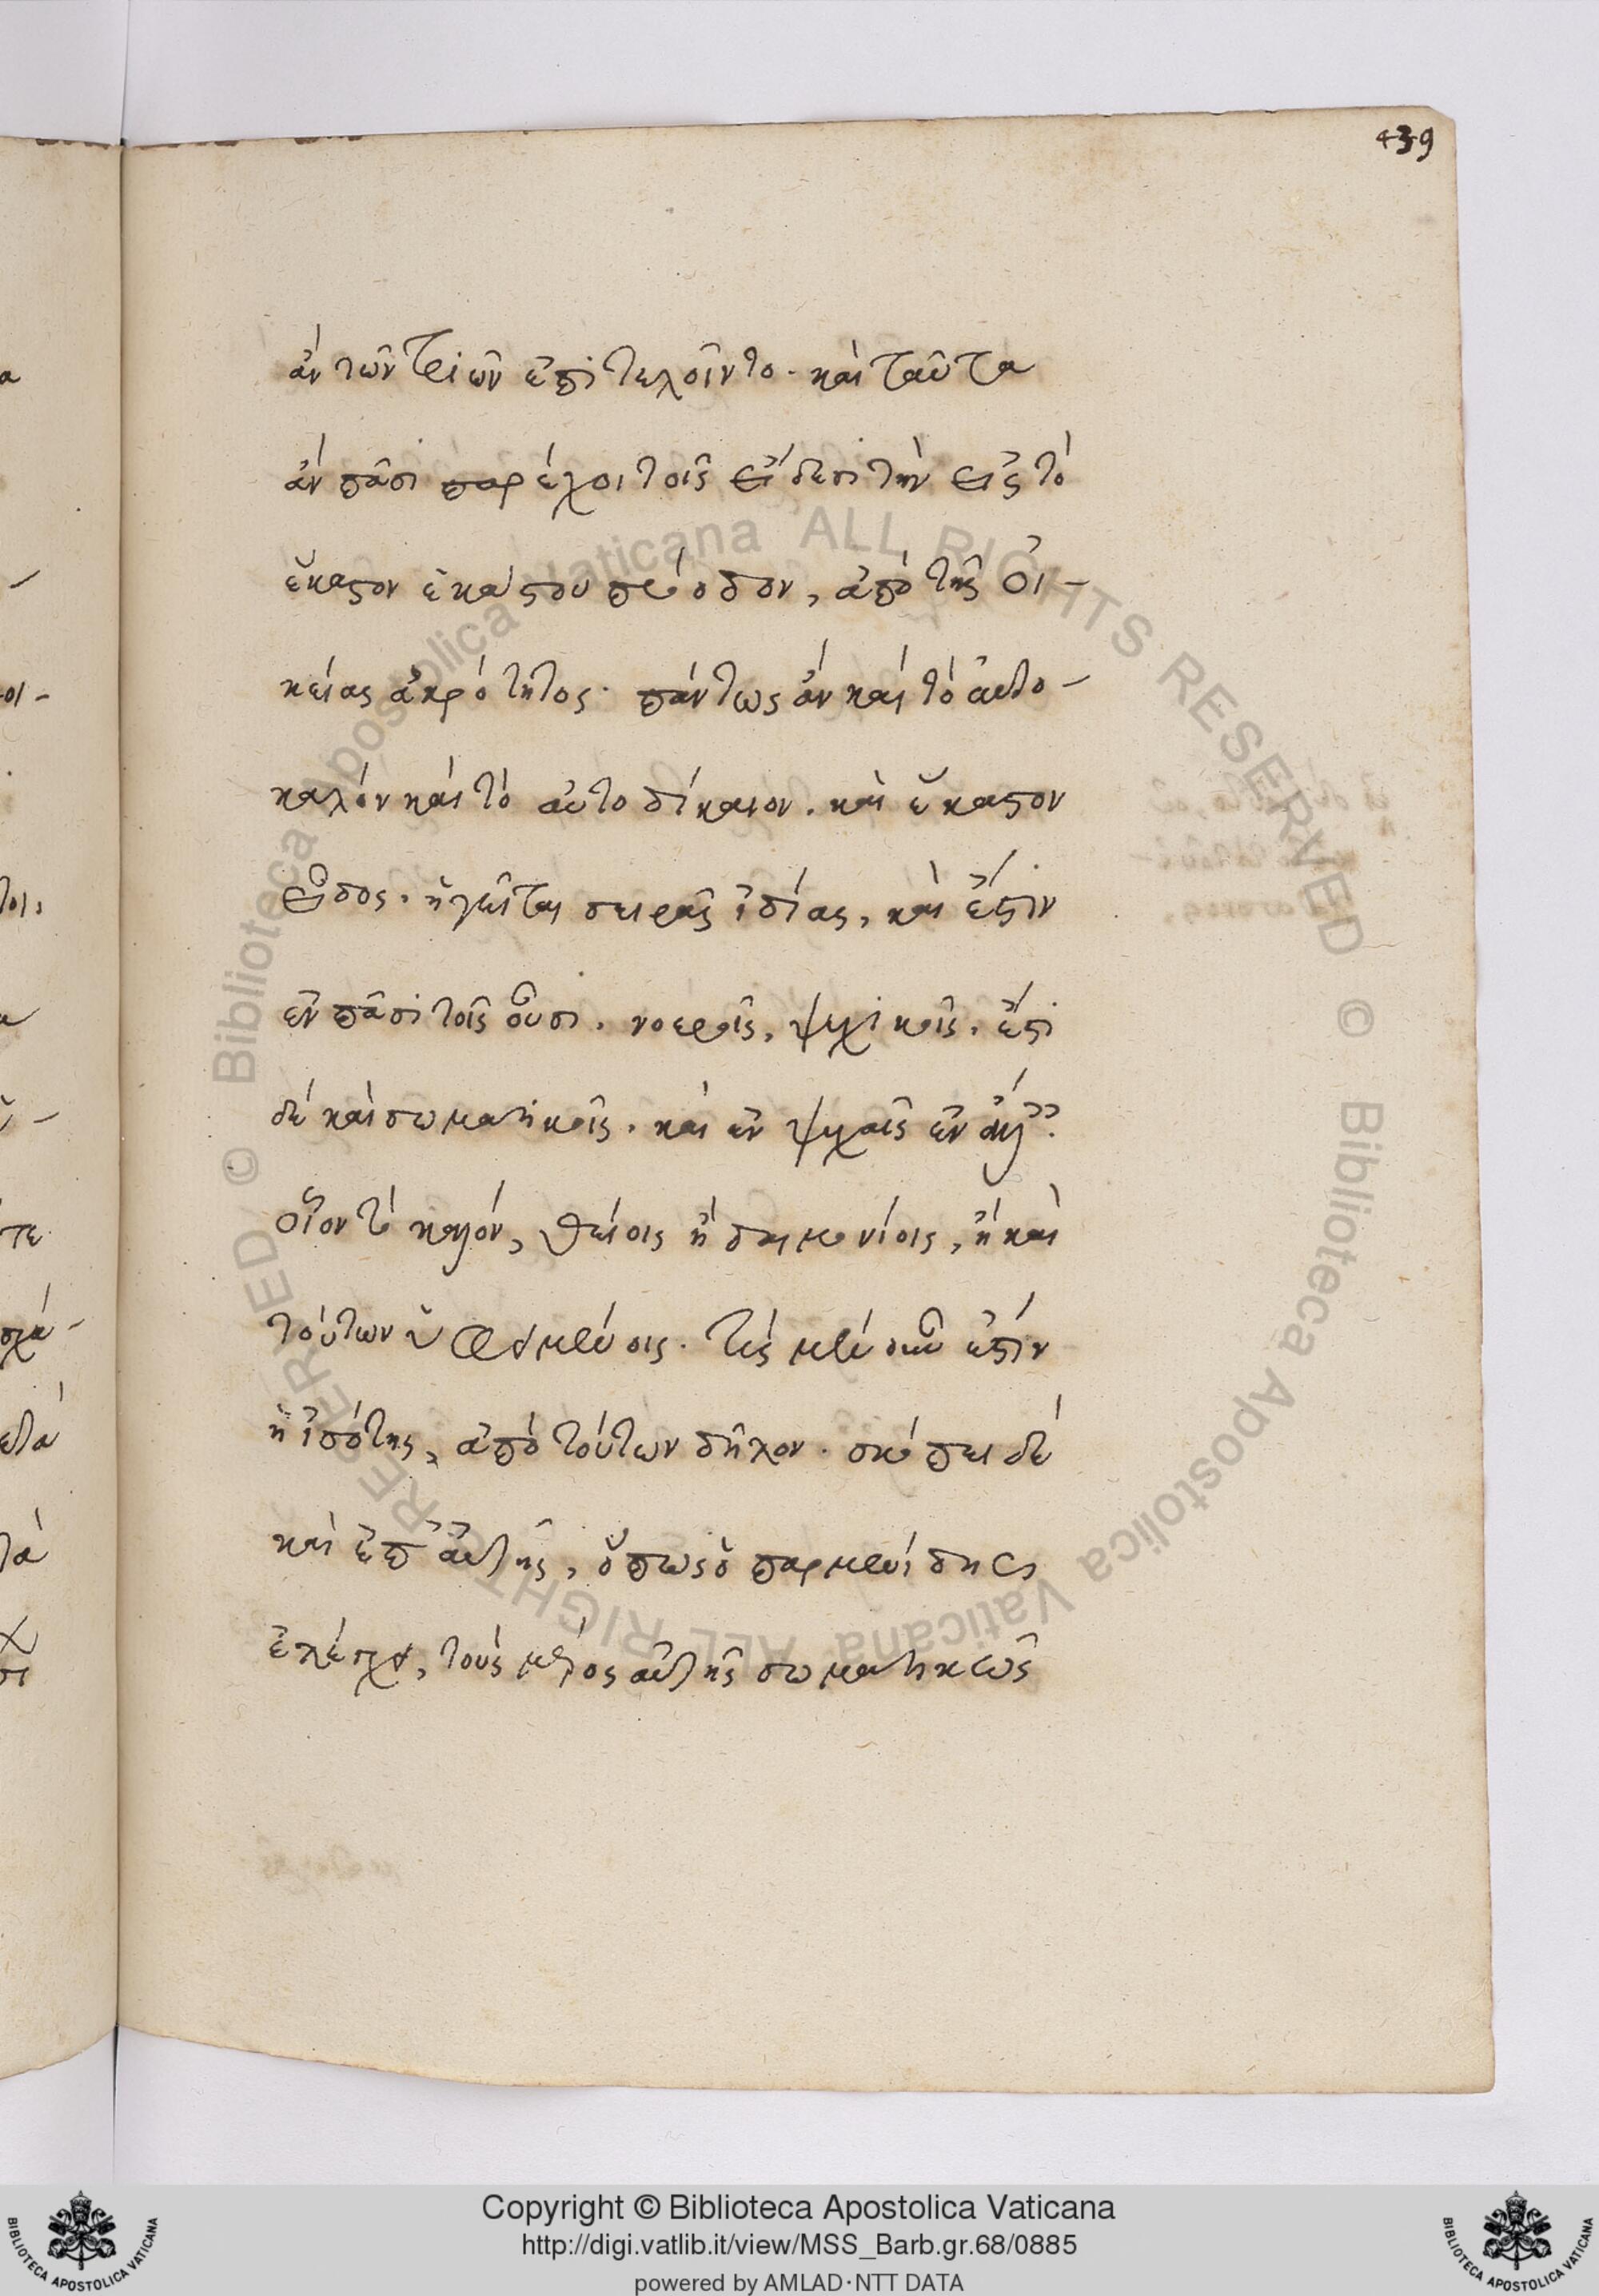 439
ἂν τῶν τριῶν ἐπιτελοῖντο· καὶ ταῦτα
ἂν πᾶσι παρέχοι τοῖς εἴδεσι τὴν εἰς τὸ
ἕκαστον ἑκάστου πρόοδον, ἀπὸ τῆς οἰ-
κείας ἀκρότητος· πάντως ἂν καὶ τὸ αὐτο-
καλὸν καὶ τὸ αὐτοδίκαιον. καὶ ἕκαστον
εἶδος. ἡγεῖται σειρᾶς ἰδίας, καὶ ἔστιν
ἐν πᾶσι τοῖς οὖσι. νοεροῖς, ψυχικοῖς. ἔτι
δὲ καὶ σωματικοῖς. καὶ ἐν ψυχαῖς ἐν
οἷον τὸ καλόν, θείοις ἢ δαιμονίοις, ἢ καὶ
τούτων ὑφειμένοις. τίς μὲν οὖν ἐστὶν
ἡ ἰσότης, ἀπὸ τούτων δῆλον. σκόπει δὲ
καὶ ἐπ' αὐτῆς, ὅπως ὁ παρμενίδης
ἐλέγχει, τοὺς μέρος αὐτῆς σωματικῶς
Copyright © Biblioteca Apostolica Vaticana
http://digi.vatlib.it/view/MSS_Barb.gr.68/0885
powered by AMLAD·NTT DATA
BIBLIOTECA APOSTOLICA VATICANA
BIBLIOTECA APOSTOLICA VATICANA
© Biblioteca Apostolica Vaticana ALL RIGHTS RESERVED © Biblioteca Apostolica Vaticana ALL RIGHTS RESERVED